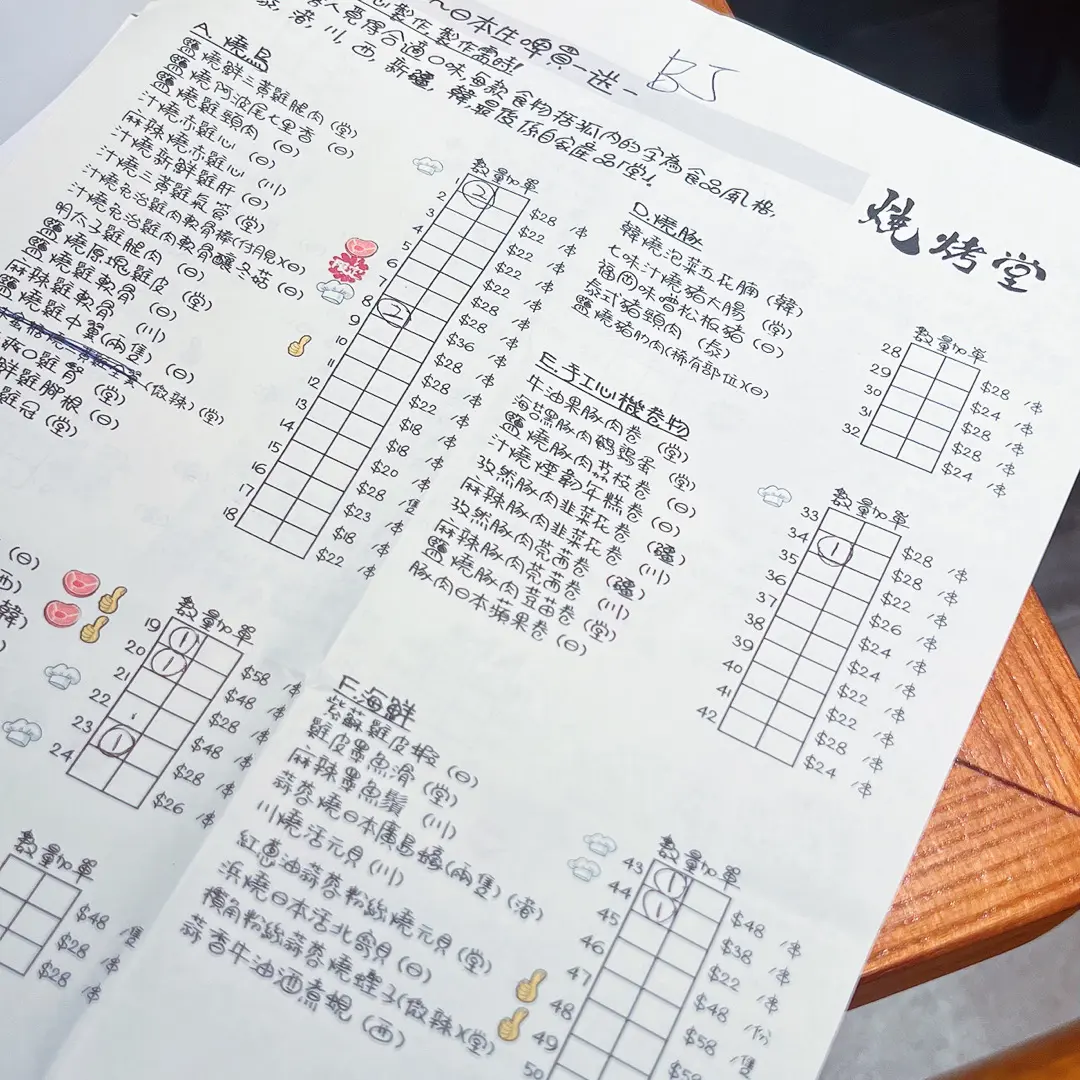 日本生啤買一送一
BJ
心製作,製作需時!
客人覺得合適口味,每款食物括弧內的字為食品風格,
泰,港,川,西,新疆,韓,最後係自家產品「堂」!
燒烤堂
A.燒鳥
鹽燒鮮三黃雞腿肉(堂)
鹽燒阿波尾七里香(日)
鹽燒雞頸肉(日)
汁燒赤雞心(日)
麻辣燒赤雞心(川)
汁燒新鮮雞肝(日)
汁燒三黃雞氣管(堂)
汁燒免治雞肉軟骨棒(付月見)(日)
汁燒免治雞肉軟骨釀冬菇(日)
明太子雞腿肉(日)
鹽燒原塊雞皮(堂)
鹽燒雞軟骨(日)
麻辣雞軟骨(川)
鹽燒雞中翼(兩隻)(日)
(微辣)(堂)
爽口雞腎(堂)
鮮雞腳根(日)
雞冠(堂)
數量加單
②
$28 /串
2 $22 /串
3 $22 /串
4 $22 /串
5 $22 /串
6 $28 /串
7 $28 /串
8 $36 /串
9 ② $28 /串
10 $28 /串
11 $22 /串
12 $18 /串
13 $18 /串
14 $20 /串
15 $28 /隻
16 $23 /串
17 $18 /串
18 $22 /串
(日)
西)
韓)
數量加單
19 ① $58 /串
20 ① $48 /串
21 $28 /串
22 $48 /串
23 ① $28 /串
24 $26 /串
數量加單
$48 /隻
$28 /串
$28 /串
D.燒豚
韓燒泡菜五花腩(韓)
七味汁燒豬大腸(堂)
福岡味噌松板豬(日)
泰式豬頸肉(泰)
鹽燒豬肋肉(稀有部位)(日)
數量加單
28 $28 /串
29 $24 /串
30 $28 /串
31 $28 /串
32 $24 /串
E.手工心機卷物
牛油果豚肉卷(堂)
海苔豚肉鵪鶉蛋(堂)
鹽燒豚肉荔枝卷(堂)
汁燒煙韌年糕卷(日)
孜然豚肉韭菜花卷(疆)
麻辣豚肉韭菜花卷(川)
孜然豚肉芫茜卷(疆)
麻辣豚肉芫茜卷(川)
鹽燒豚肉荳苗卷(堂)
豚肉日本蘋果卷(日)
數量加單
33 $28 /串
34 ① $28 /串
35 $22 /串
36 $26 /串
37 $24 /串
38 $24 /串
39 $22 /串
40 $22 /串
41 $28 /串
42 $24 /串
F.海鮮
紫蘇雞皮蝦(日)
雞皮墨魚滑(堂)
麻辣墨魚鬚(川)
蒜蓉燒日本廣島蠔(兩隻)(港)
川燒活元貝(川)
紅蔥油蒜蓉粉絲燒元貝(堂)
浜燒日本活北寄貝(日)
欖角粉絲蒜蓉燒蟶子(微辣)(堂)
蒜香牛油酒煮蜆(西)
數量加單
43 ① $48 /串
44 ① $38 /串
45 $22 /串
46 $48 /份
47 $58 /隻
48
49
50